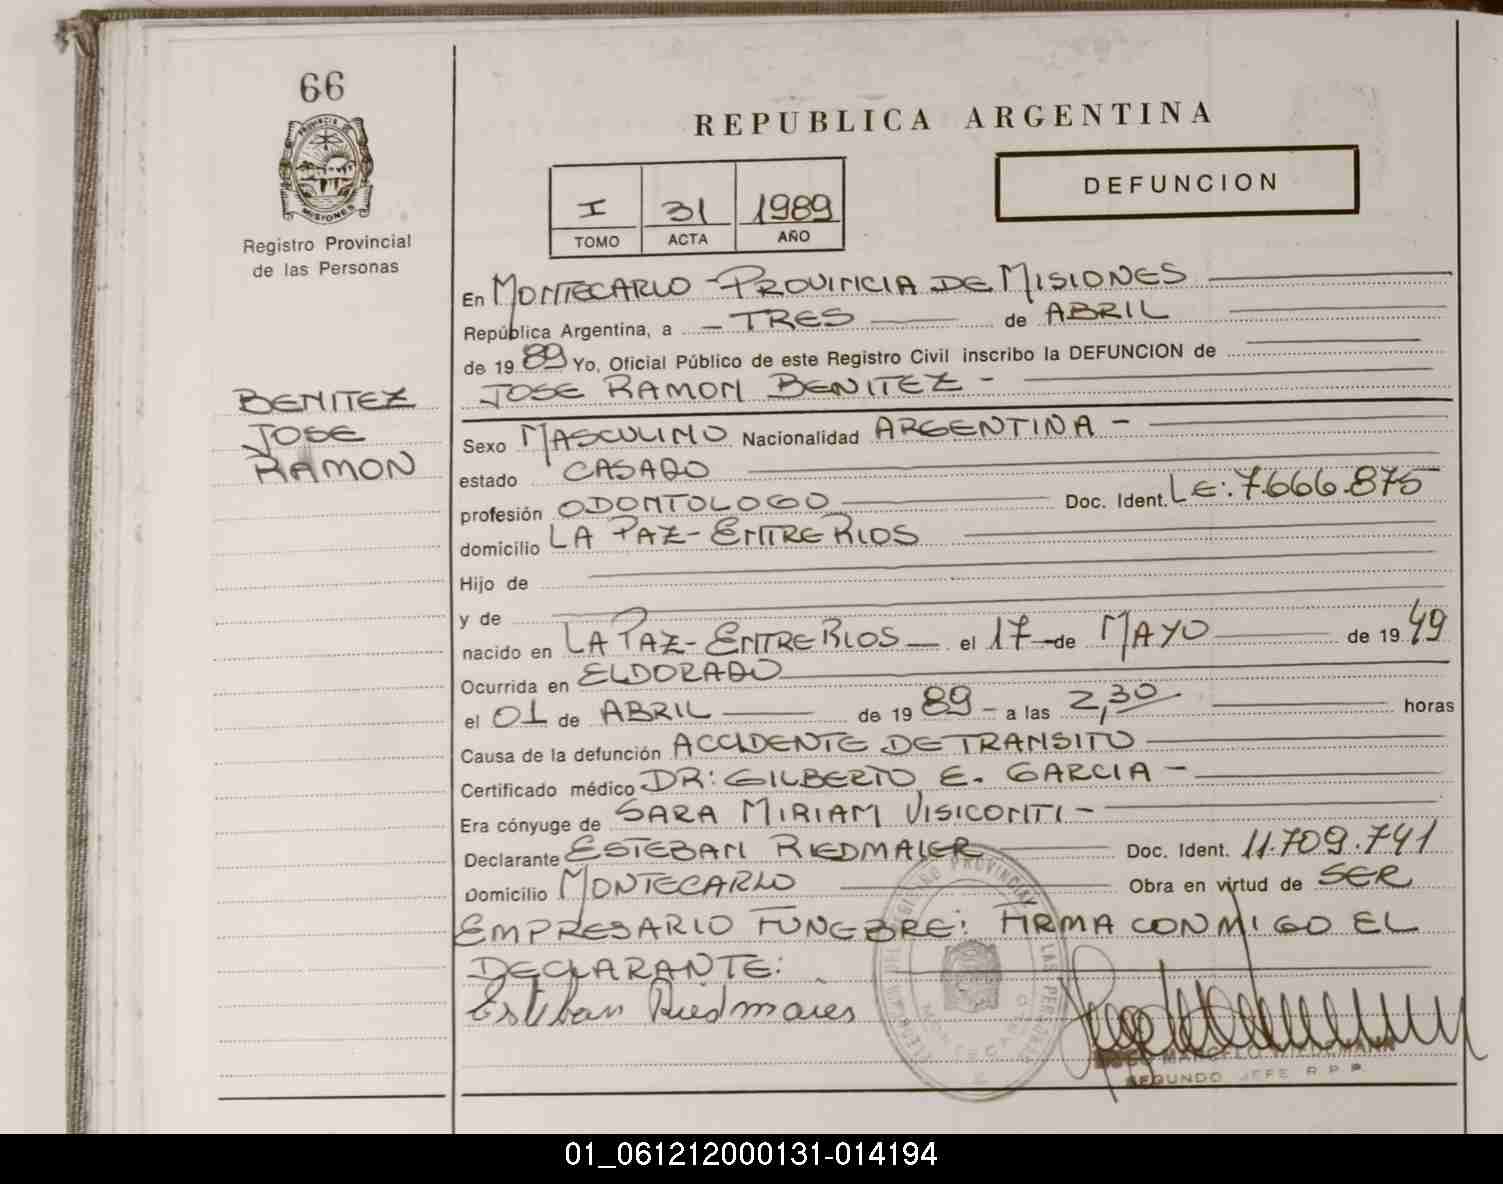 66
PROVINCIA DE
MISIONES
Registro Provincial
de las Personas
BENITEZ
JOSE
RAMON
REPUBLICA ARGENTINA
DEFUNCION
I 31 1989
TOMO ACTA AÑO
En MONTECARLO - PROVINCIA DE MISIONES
República Argentina, a - TRES de ABRIL
de 1989 Yo, Oficial Público de este Registro Civil inscribo la DEFUNCION de
JOSE RAMON BENITEZ -
Sexo MASCULINO Nacionalidad ARGENTINA -
estado CASADO
profesión ODONTOLOGO Doc. Ident. LE: 7.666.875
domicilio LA PAZ - ENTRE RIOS
Hijo de
y de
nacido en LA PAZ - ENTRE RIOS el 17 de MAYO de 1949
Ocurrida en ELDORADO
el 01 de ABRIL de 1989 - a las 2,30 horas
Causa de la defunción ACCIDENTE DE TRANSITO
Certificado médico DR: GILBERTO E. GARCIA -
Era cónyuge de SARA MIRIAM VISICONTI -
Declarante ESTEBAN RIEDMAIER Doc. Ident. 11.709.741
Domicilio MONTECARLO Obra en virtud de SER
EMPRESARIO FUNEBRE: FIRMA CONMIGO EL
DECLARANTE:
Esteban Riedmaier
MARCELO WIEDEMANN
SEGUNDO JEFE R.P.P.
01_061212000131-014194